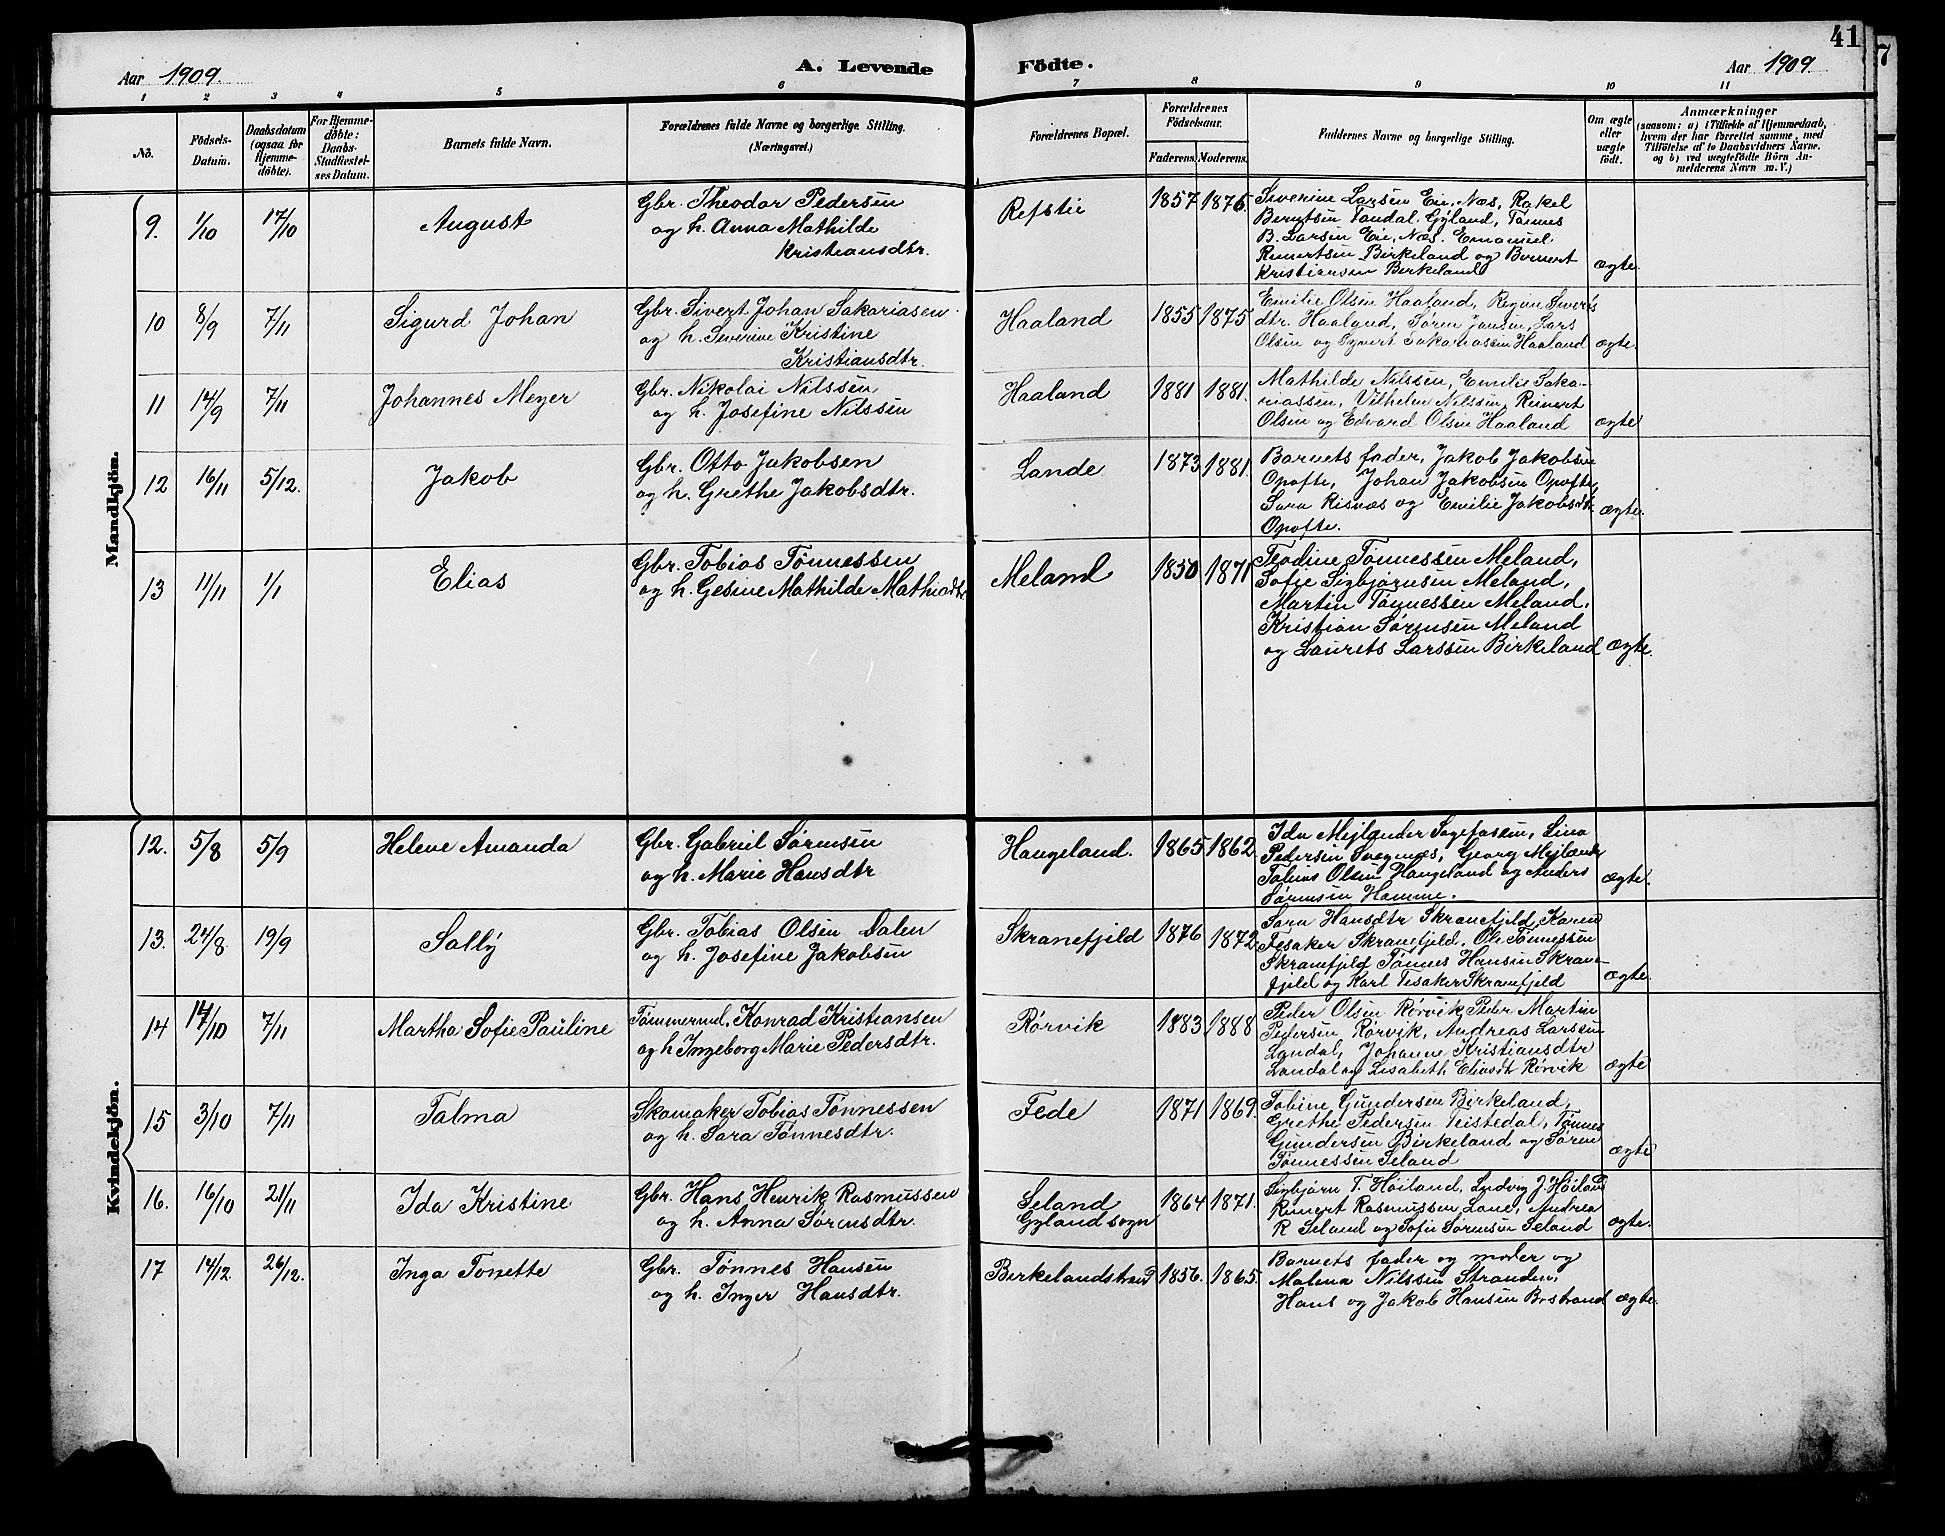 41
7
Aar 1909.
A. Levende
Födte.
Aar 1909
1 2 3 4 5 6 7 8 9 10 11
No.
Födsels-
Datum.
Daabsdatum
(ogsaa for
Hjemme-
döbte).
For Hjemme-
döbte:
Daabs-
Stadfæstel-
ses Datum.
Barnets fulde Navn.
Forældrenes fulde Navne og borgerlige Stilling.
(Næringsvei.)
Forældrenes Bopæl.
Forældrenes
Födselsaar.
Faderens. Moderens.
Faddernes Navne og borgerlige Stilling.
Om ægte
eller
uægte
födt.
Anmærkninger
(saasom: a) i Tilfælde af Hjemmedaab,
hvem der har forrettet samme, med
Tilföielse af to Daabsvidners Navne.
og b) ved uægtefödte Börn An-
melderens Navn m.V.)
Mandkjön.
9. 1/10 17/10 August
Gbr. Theodor Pedersen
og h. Anna Mathilde
Kristiansdtr.
Refstie 1857 1876.
Severine Larsen Eie, Næs, Rakel
Berntsen Tandal, Gyland, Tønnes
B. Larsen Eie, Næs. Emanuel
Reinertsen Birkeland og Bernert
Kristiansen Birkeland
ægte.
10 8/9 7/11 Sigurd Johan
Gbr. Sivert Johan Sakariasen
og h. Severine Kristine
Kristiansdtr.
Haaland 1855 1875
Emilie Olsen Haaland, Regine Siverts
dtr. Haaland, Søren Jansen, Lars
Olsen og Syvert Sakariassen Haaland
ægte.
11 14/9 7/11 Johannes Meyer
Gbr. Nikolai Nilssen
og h. Josefine Nilssen
Haaland 1881 1881.
Mathilde Nilssen, Emilie Saka-
riassen, Vilhelm Nilssen, Reinert
Olsen og Edvard Olsen Haaland
ægte
12 16/11 5/12. Jakob
Gbr. Otto Jakobsen
og h. Grethe Jakobsdtr.
Lande 1873 1881.
Barnets fader, Jakob Jakobsen
Opofte, Johan Jakobsen Opofte,
Sara Risnæs og Emilie Jakobsdtr
Opofte.
ægte.
13 11/11 1/1 Elias
Gbr. Tobias Tønnessen
og h. Gesine Mathilde Mathiasdtr
Meland 1850 1871
Teodine Tønnessen Meland,
Sofie Sigbjørnsen Meland,
Martin Tønnessen Meland.
Kristian Sørensen Meland
og Laurets Larssen Birkeland
ægte.
Kvindekjön.
12. 5/8 5/9 Helene Amanda
Gbr. Gabriel Sørensen
og h. Marie Hansdtr
Haugeland. 1865 1862
Ida Mejlænder Sagefossen, Lina
Pedersen Svegenæs, Georg Mejlænder
Tobias Olsen Haugeland og Anders
Sørensen Hamme.
ægte.
13. 24/8 19/9 Sally
Gbr. Tobias Olsen Dalen
og h. Josefine Jakobsen
Skranefjeld 1876 1872.
Sara Hansdtr Skranefjeld, Karen
Fesaker Skranefjeld. Ole Tønnessen
Skranefjeld Tønnes Hansen Skrane-
fjeld og Karl Fesaker Skranefjeld
ægte.
14 14/10 7/11 Martha Sofie Pauline
Tømmermd. Konrad Kristiansen
og h Ingeborg Marie Pedersdtr.
Rørvik 1883 1888
Peder Olsen Rørvik, Peder Martin
Pedersen Rørvik, Andreas Larsen
Landal, Johanne Kristiansdtr
Landal og Lisabeth Eliasdt Rørvik
ægte
15 3/10 7/11 Talma
Skomaker Tobias Tønnessen
og h. Sara Tønnesdtr.
Fede 1871 1869.
Tobine Gundersen Birkeland,
Grethe Pedersen Teistedal, Tønnes
Gundersen Birkeland og Søren
Tønnessen Seland
ægte
16. 16/10 21/11 Ida Kristine
Gbr. Hans Henrik Rasmussen
og h. Anna Sørensdtr.
Seland
Gylandsogn
1864 1871.
Sigbjørn T. Høiland, Ludvig J Høiland
Reinert Rasmussen Lane, Andrea
R Seland og Sofie Sørensen Seland
ægte.
17 14/12 26/12. Inga Tonette
Gbr. Tønnes Hansen
og h. Inger Hansdtr.
Birkelandstrand 1856. 1865.
Barnets fader og moder og
Malena Nilssen Stranden,
Hans og Jakob Hansen Brstrand
ægte.